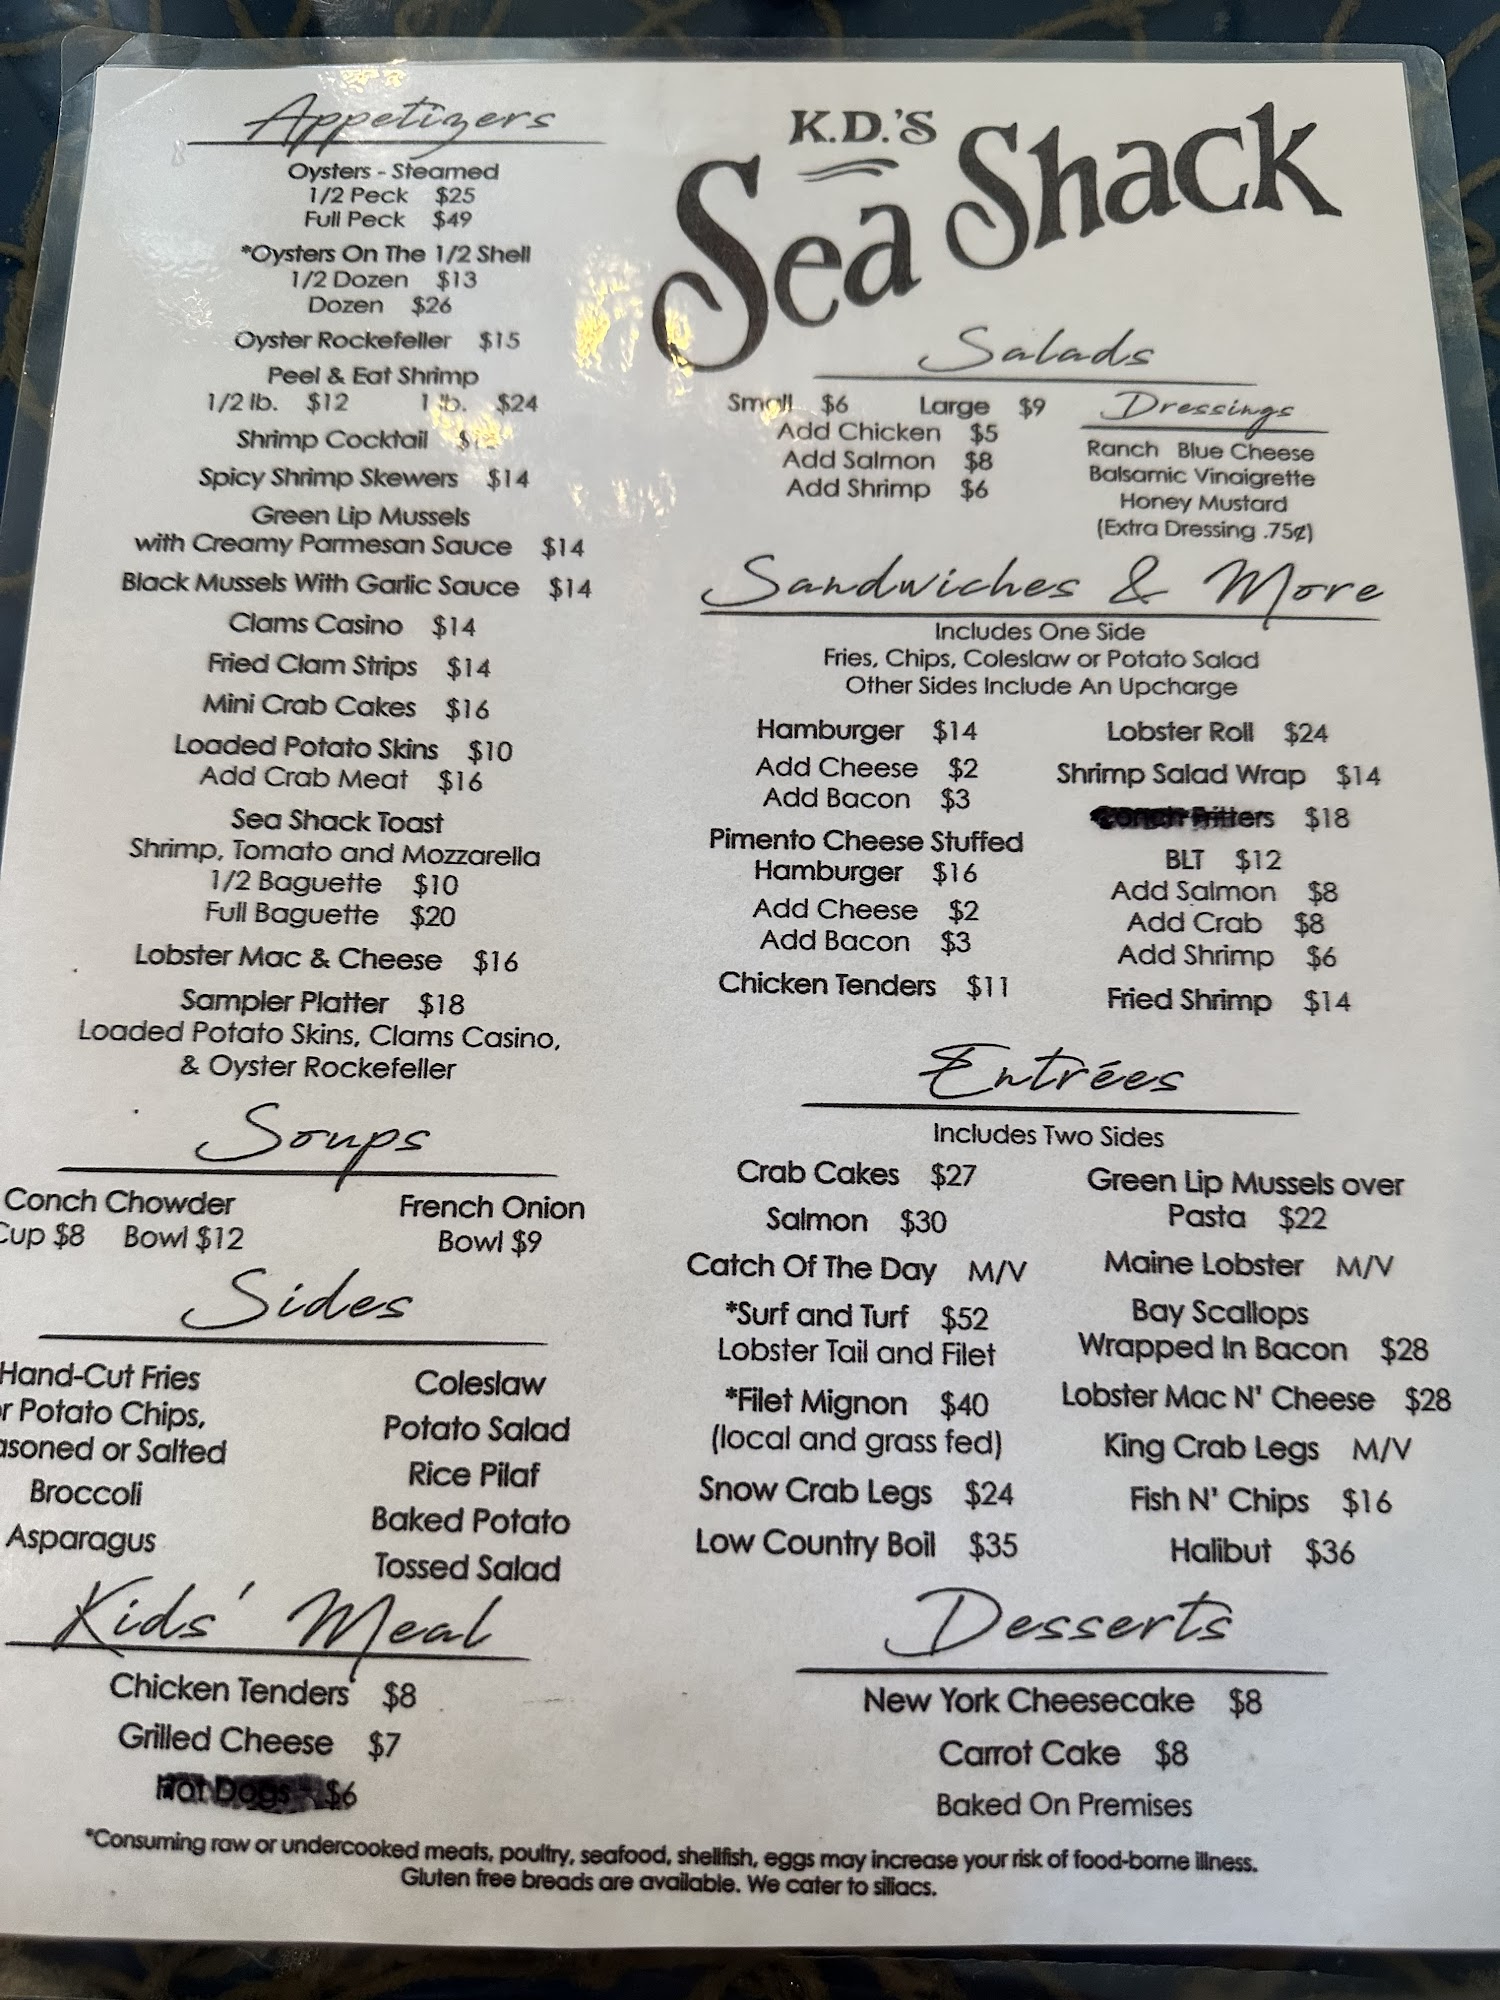 K.D.'S
Sea Shack
Appetizers
Oysters - Steamed
1/2 Peck $25
Full Peck $49
*Oysters On The 1/2 Shell
1/2 Dozen $13
Dozen $26
Oyster Rockefeller $15
Peel & Eat Shrimp
1/2 lb. $12 1 lb. $24
Shrimp Cocktail
Spicy Shrimp Skewers $14
Green Lip Mussels
with Creamy Parmesan Sauce $14
Black Mussels With Garlic Sauce $14
Clams Casino $14
Fried Clam Strips $14
Mini Crab Cakes $16
Loaded Potato Skins $10
Add Crab Meat $16
Sea Shack Toast
Shrimp, Tomato and Mozzarella
1/2 Baguette $10
Full Baguette $20
Lobster Mac & Cheese $16
Sampler Platter $18
Loaded Potato Skins, Clams Casino,
& Oyster Rockefeller
Soups
Conch Chowder
Cup $8 Bowl $12
French Onion
Bowl $9
Sides
Hand-Cut Fries
or Potato Chips,
asoned or Salted
Broccoli
Asparagus
Coleslaw
Potato Salad
Rice Pilaf
Baked Potato
Tossed Salad
Kids' Meal
Chicken Tenders $8
Grilled Cheese $7
Hot Dogs - $6
Salads
Small $6 Large $9
Add Chicken $5
Add Salmon $8
Add Shrimp $6
Dressings
Ranch Blue Cheese
Balsamic Vinaigrette
Honey Mustard
(Extra Dressing .75¢)
Sandwiches & More
Includes One Side
Fries, Chips, Coleslaw or Potato Salad
Other Sides Include An Upcharge
Hamburger $14
Add Cheese $2
Add Bacon $3
Pimento Cheese Stuffed
Hamburger $16
Add Cheese $2
Add Bacon $3
Chicken Tenders $11
Lobster Roll $24
Shrimp Salad Wrap $14
Conch Fritters $18
BLT $12
Add Salmon $8
Add Crab $8
Add Shrimp $6
Fried Shrimp $14
Entrées
Includes Two Sides
Crab Cakes $27
Salmon $30
Catch Of The Day M/V
*Surf and Turf $52
Lobster Tail and Filet
*Filet Mignon $40
(local and grass fed)
Snow Crab Legs $24
Low Country Boil $35
Green Lip Mussels over
Pasta $22
Maine Lobster M/V
Bay Scallops
Wrapped In Bacon $28
Lobster Mac N' Cheese $28
King Crab Legs M/V
Fish N' Chips $16
Halibut $36
Desserts
New York Cheesecake $8
Carrot Cake $8
Baked On Premises
*Consuming raw or undercooked meats, poultry, seafood, shellfish, eggs may increase your risk of food-borne illness.
Gluten free breads are available. We cater to siliacs.